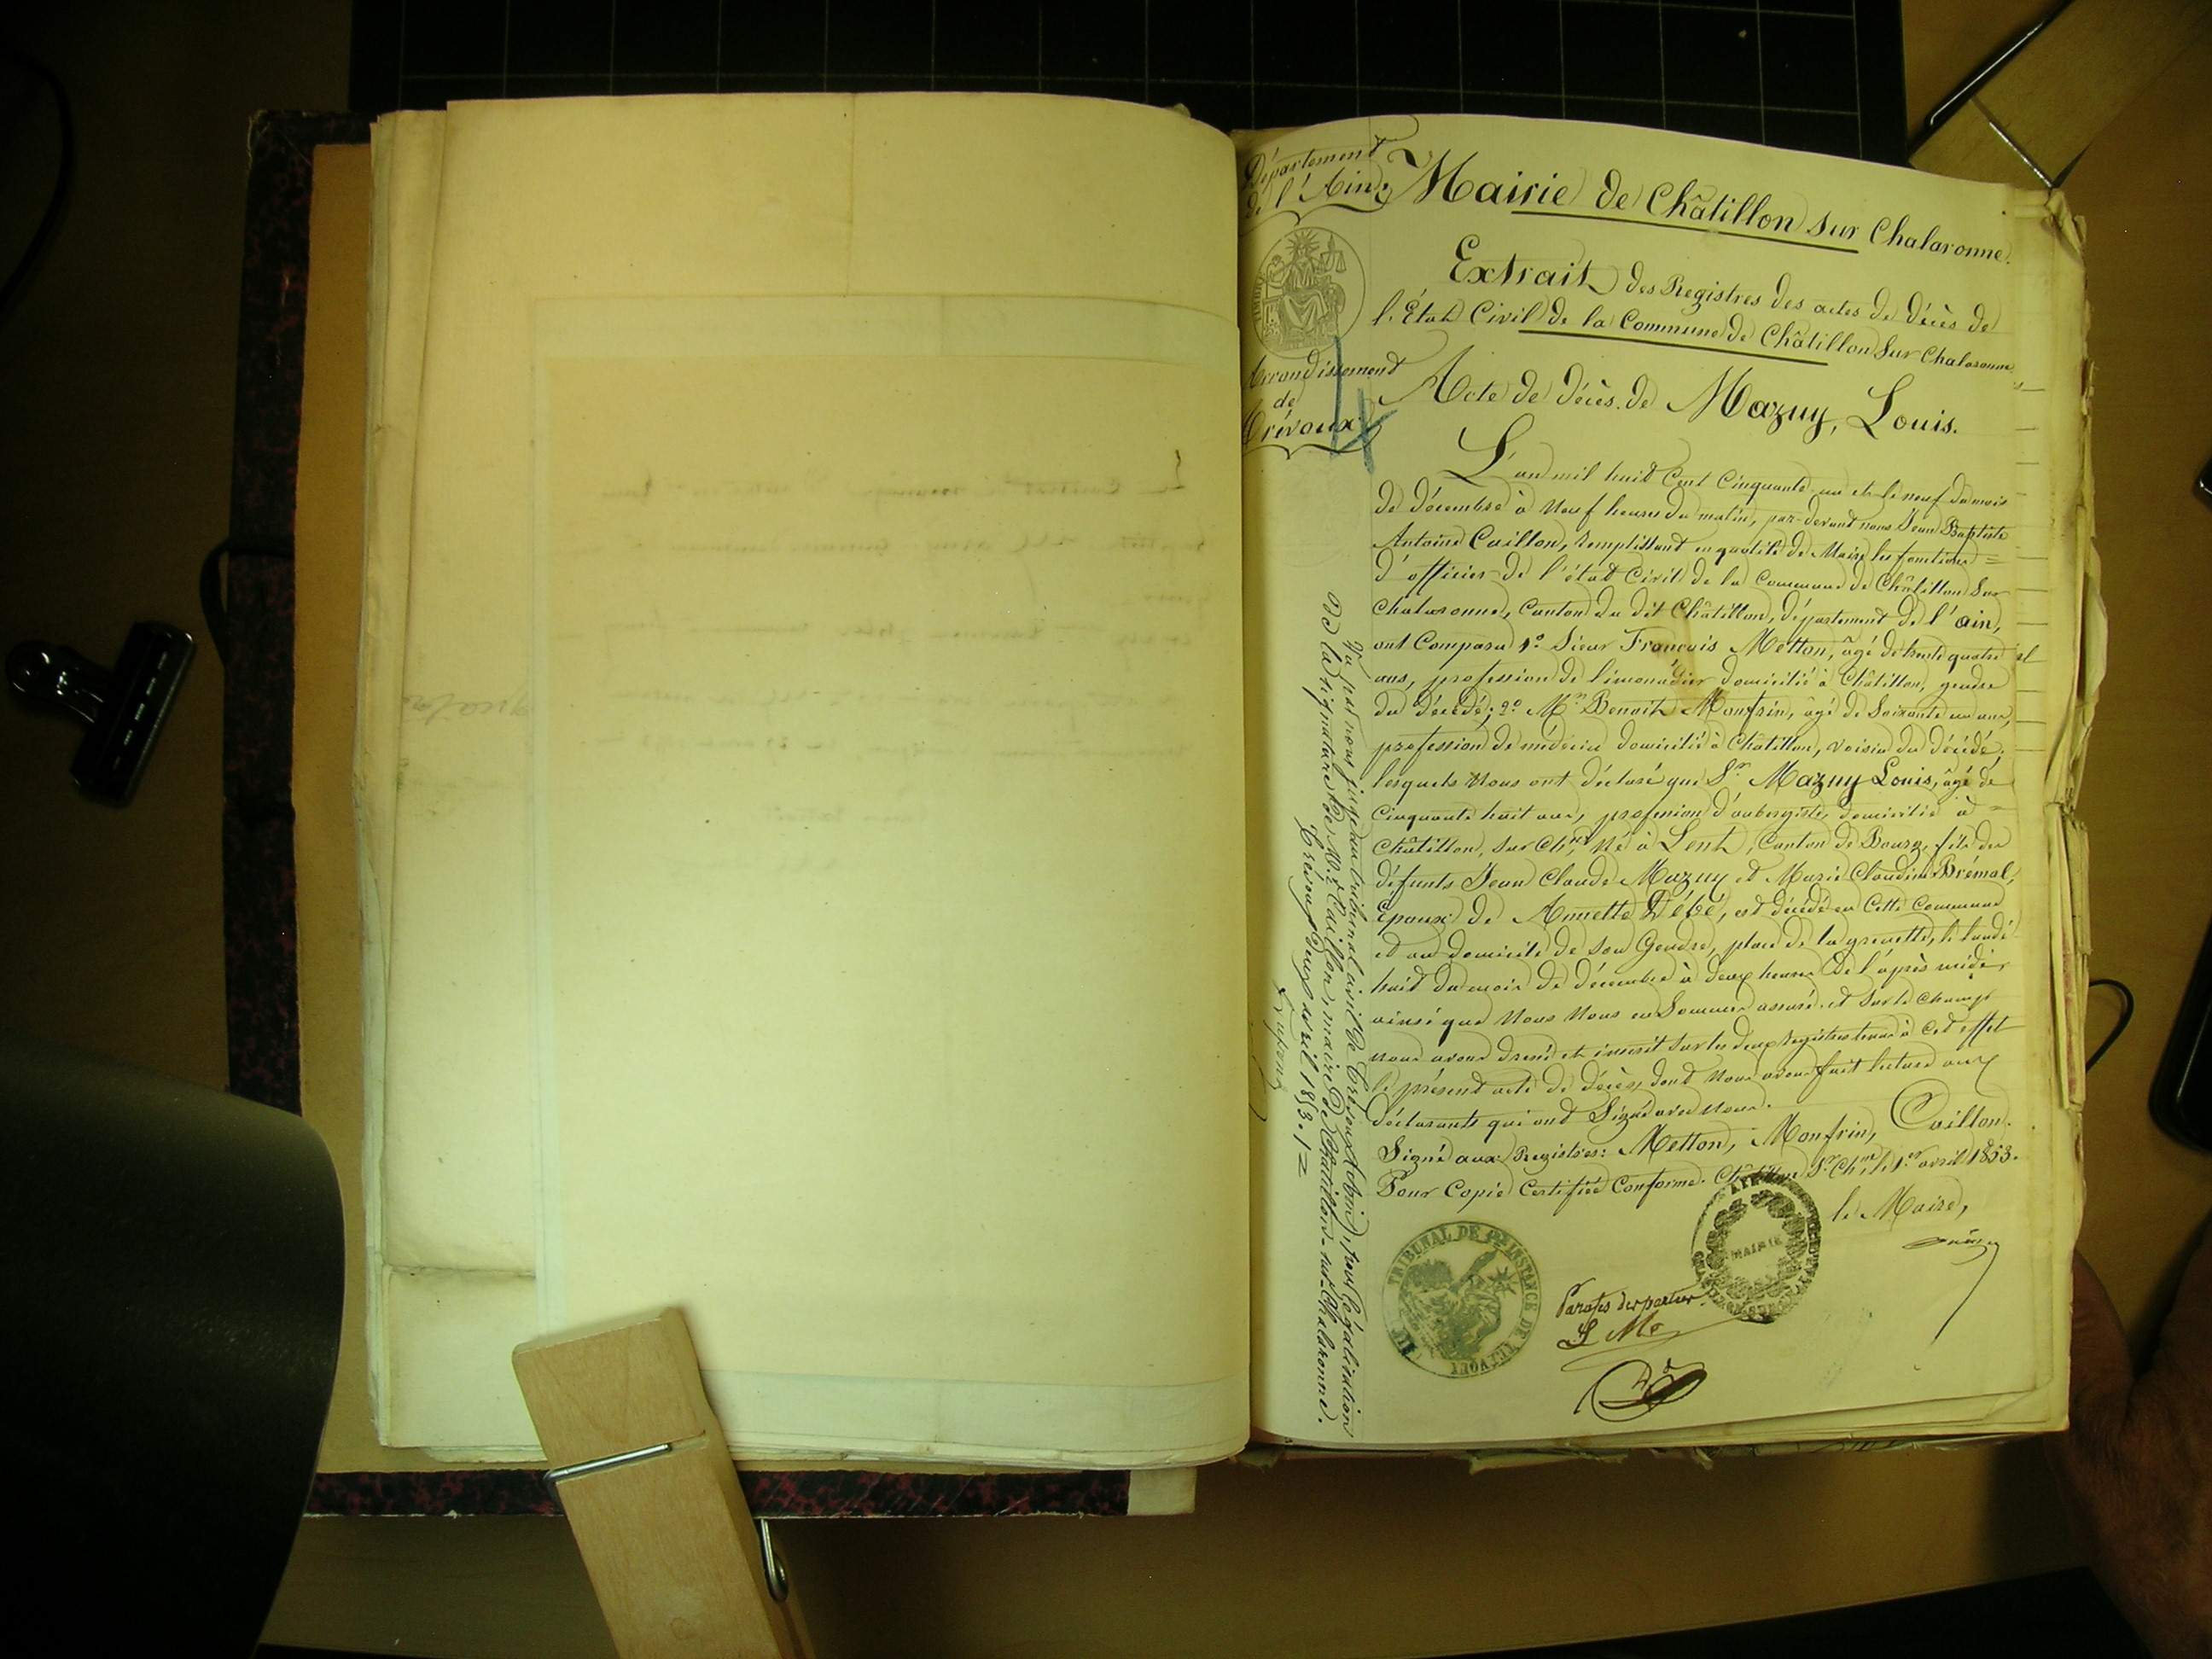 Département
de l'Ain
Mairie de Châtillon sur Chalaronne.
Extrait des Registres des actes de décès de
l'État Civil de la Commune de Châtillon Sur Chalaronne
TIMBRE
Arrondissement
de
Trévoux
Acte de décès de Mazuy, Louis.
L'an mil huit Cent Cinquante-un et le neuf du mois
de décembre à neuf heures du matin, par-devant nous Jean Baptiste
Antoine Caillon, remplissant en qualité de Maire les fonctions =
d'officier de l'état Civil de la Commune de Châtillon Sur
Chalaronne, Canton du dit Châtillon, département de l'ain,
ont Comparu 1° Sieur François Metton, âgé de trente quatre
ans, profession de limonadier domicilié à Châtillon, gendre
du décédé; 2° Mr Benoit Monfrin, âgé de Soixante un ans,
profession de médecin domicilié à Châtillon, voisin du décédé.
lesquels Nous ont déclaré que Sr. Mazuy Louis, âgé de
Cinquante huit ans, profession d'aubergiste, domicilié à =
Châtillon, sur Chne, Né à Lent, Canton de Bourg, fils des
défunts Jean Claude Mazuy et Marie Claudine Brémal,
Epoux de Annette Débé, est décédé en Cette Commune
et au domicile de son Gendre, place de la grenette, le lundi
huit du mois de décembre à deux heures de l'après midi,
ainsi que Nous Nous en Sommes assuré. et Sur le Champ
nous avons dressé et inscrit sur les deux Registres tenus à Cet effet
le présent acte de décès, dont Nous avons fait lecture aux
déclarants qui ont Signé avec Nous.
Signé aux Registres: Metton, Monfrin, Caillon.
Pour Copie Certifiée Conforme. Châtillon Sr. Chne, le 1er avril 1853.
le Maire,
MAIRIE
TRIBUNAL DE 1re INSTANCE DE TREVOUX
Parafes des parties
L M
Vu par nous juge au tribunal civil de Trévoux (Ain), pour légalisation
de la signature de M. Caillon, maire de Châtillon-sur-Chalaronne.
Trévoux, deux avril 1853.